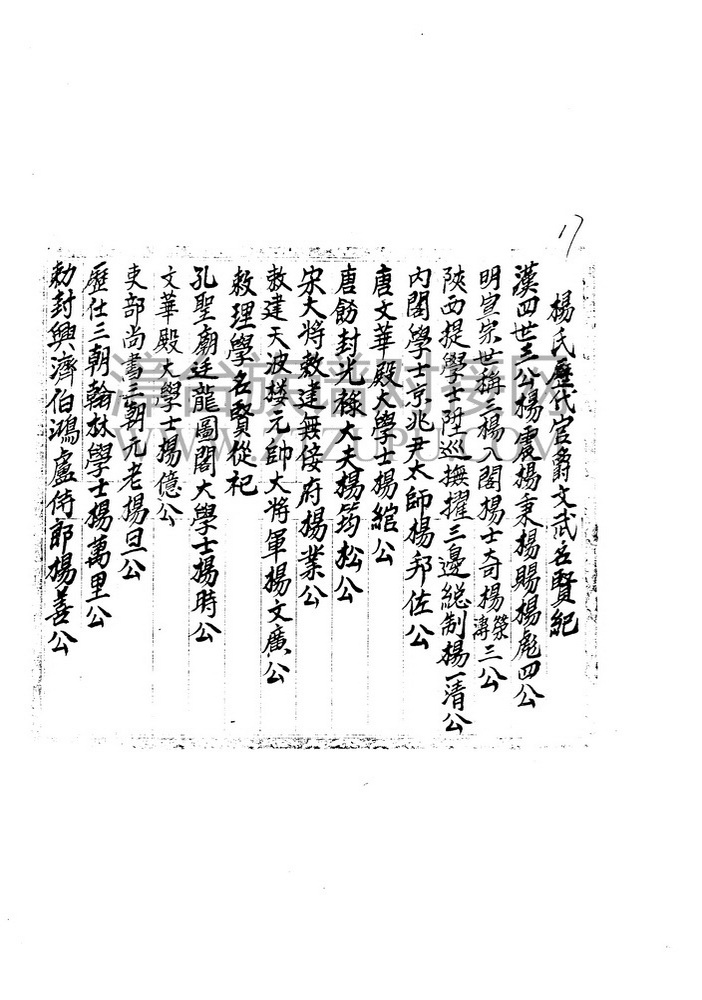 17
楊氏歷代官爵文武名賢紀
漢四世三公楊震楊秉楊賜楊彪四公
明宣宗世稱三楊入閣楊士奇楊榮溥三公
陝西提學士陞巡撫擢三邊總制楊一清公
內閣學士京兆尹太師楊邦佐公
唐文華殿大學士楊綰公
唐飭封光祿大夫楊筠松公
宋大將敕建無佞府楊業公
敕建天波樓元帥大將軍楊文廣公
敕理學名賢從祀
孔聖廟廷龍圖閣大學士楊時公
文華殿大學士揚億公
吏部尚書三朝元老楊旦公
歷仕三朝翰林學士楊萬里公
勅封興濟伯鴻盧侍郎楊善公
漳台族谱对接网
WWW.ZTZUPU.COM